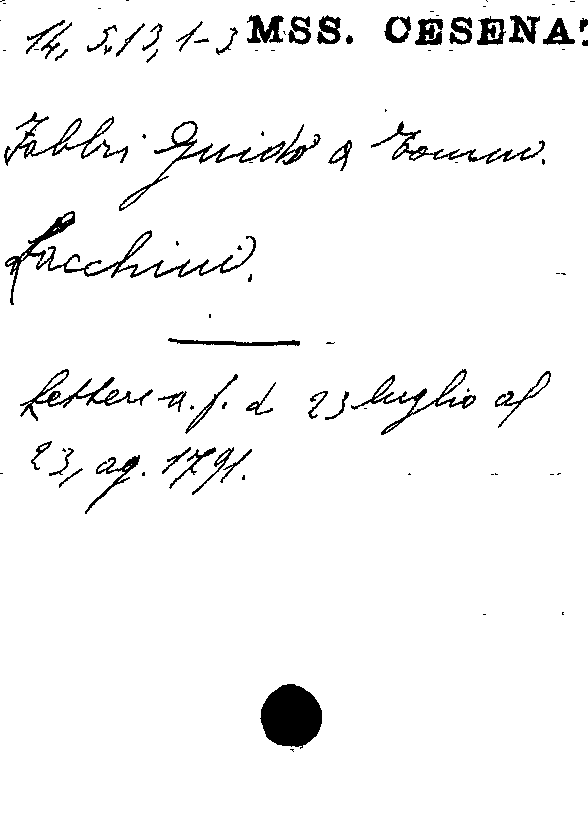 14, 5.13, 1-3 MSS. CESENAT
Fabbri Guido a Tommo.
Lacchini.
Lettere a. f. d. 23 luglio al
23, ag. 1791.